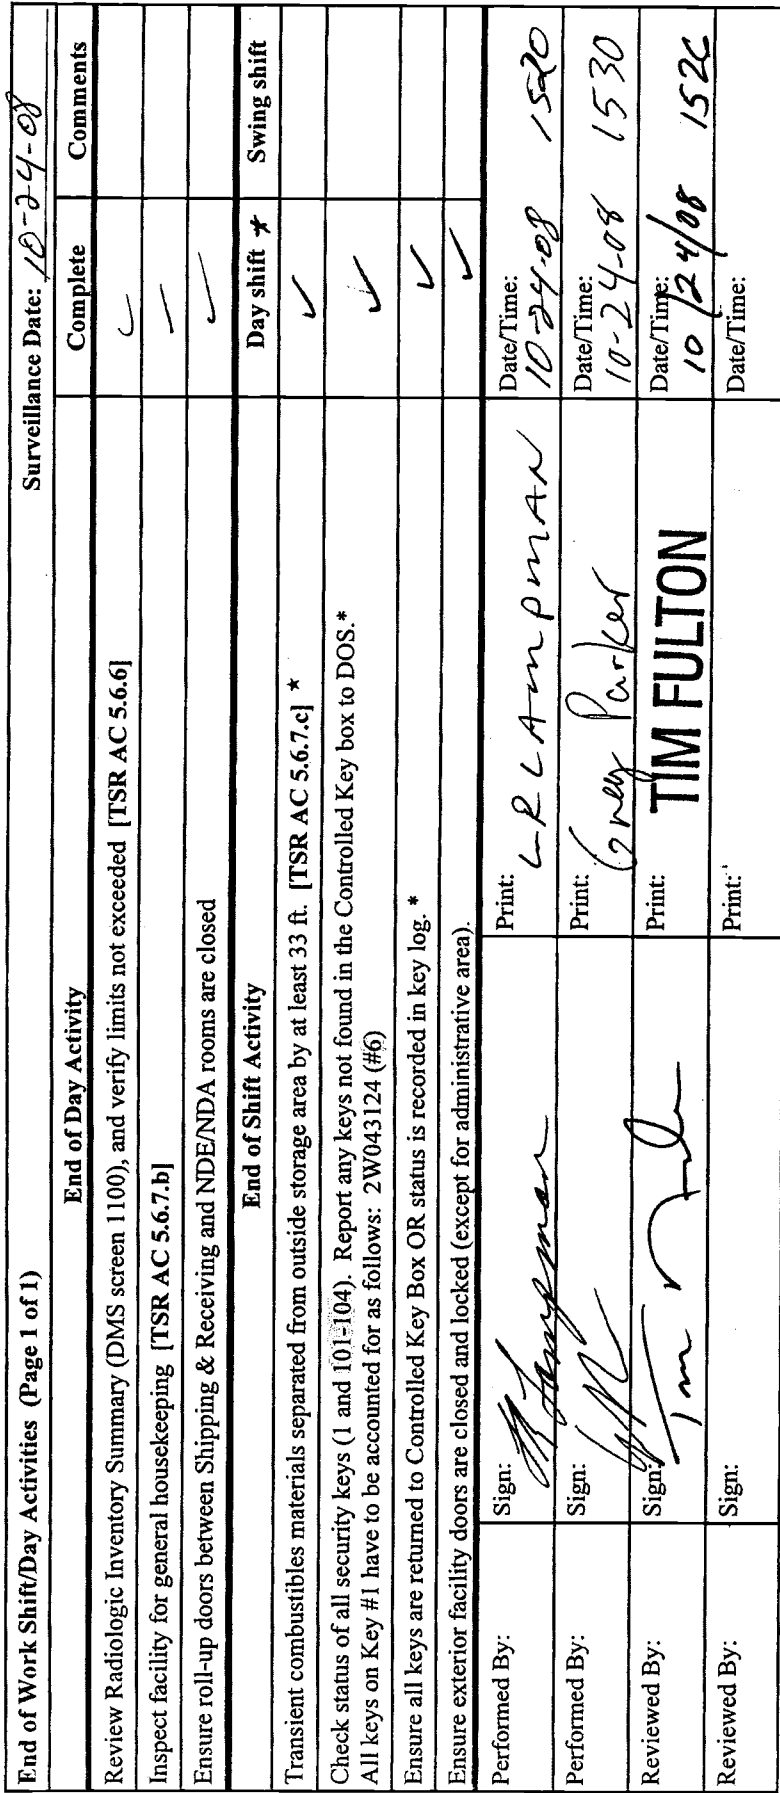 End of Work Shift/Day Activities (Page 1 of 1) Surveillance Date: 10-24-08
End of Day Activity Complete Comments
Review Radiologic Inventory Summary (DMS screen 1100), and verify limits not exceeded [TSR AC 5.6.6]
Inspect facility for general housekeeping [TSR AC 5.6.7.b]
Ensure roll-up doors between Shipping & Receiving and NDE/NDA rooms are closed
End of Shift Activity Day shift * Swing shift
Transient combustibles materials separated from outside storage area by at least 33 ft. [TSR AC 5.6.7.c] *
Check status of all security keys (1 and 101-104). Report any keys not found in the Controlled Key box to DOS.*
All keys on Key #1 have to be accounted for as follows: 2W043124 (#6)
Ensure all keys are returned to Controlled Key Box OR status is recorded in key log. *
Ensure exterior facility doors are closed and locked (except for administrative area).
Performed By: Sign: Print: LR LAmpmAN Date/Time: 10-24-08 1520
Performed By: Sign: Print: Greg Parker Date/Time: 10-24-08 1530
Reviewed By: Sign: Print: TIM FULTON Date/Time: 10/24/08 1526
Reviewed By: Sign: Print: Date/Time: